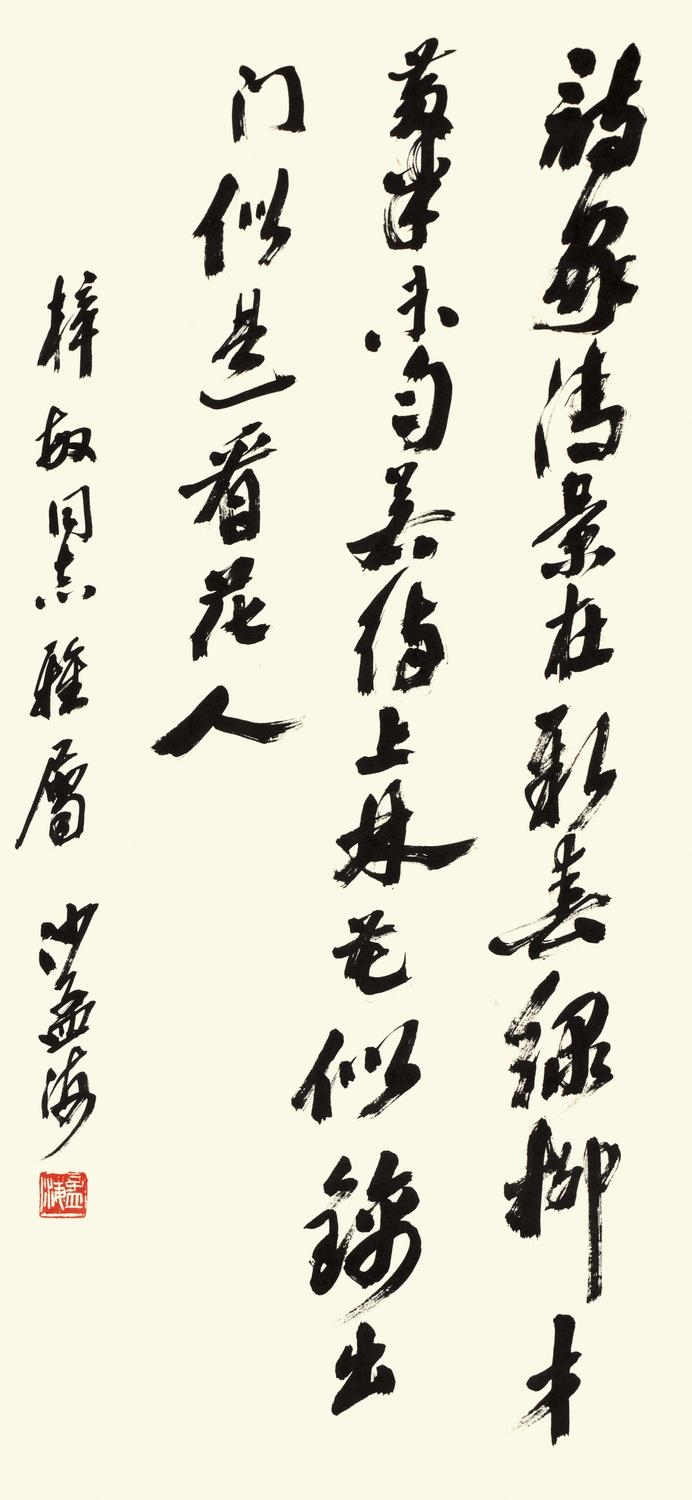 詩家清景在新春綠柳才
黄半未匀若待上林花似錦出
门似是看花人
梓敏同志雅属 沙孟海
孟海